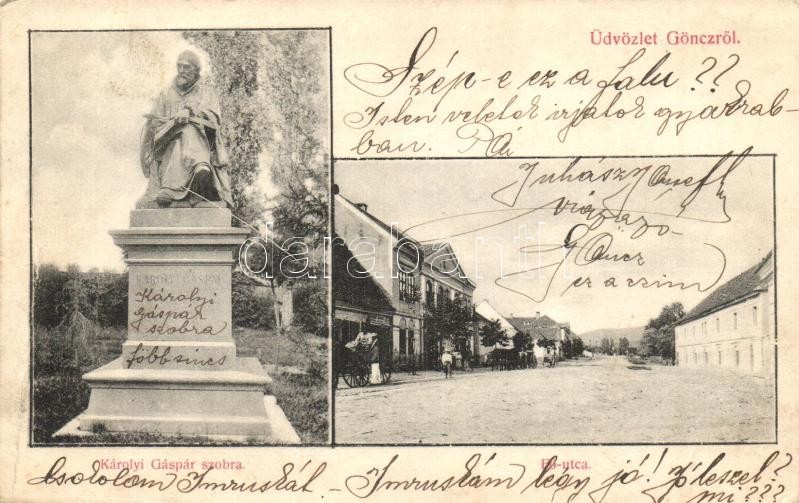 Üdvözlet Gönczről.
Szép-e ez a falu??
Isten veletek irjatok gyakrab-
ban. Pá
Juhász József
Göncz
ez a czim
KÁROLYI GÁSPÁR
Károlyi
gáspár
szobra
főbb sincs
darabanth
Károlyi Gáspár szobra.
Fő-utca.
Csókolom Imruskát. Imruskám légy jó! Jó leszel?
mi???